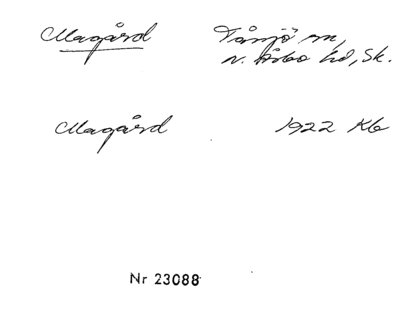 Magård Tåssjö sn,
N. Åsbo hd, Sk.
Magård 1922 Kb
Nr 23088